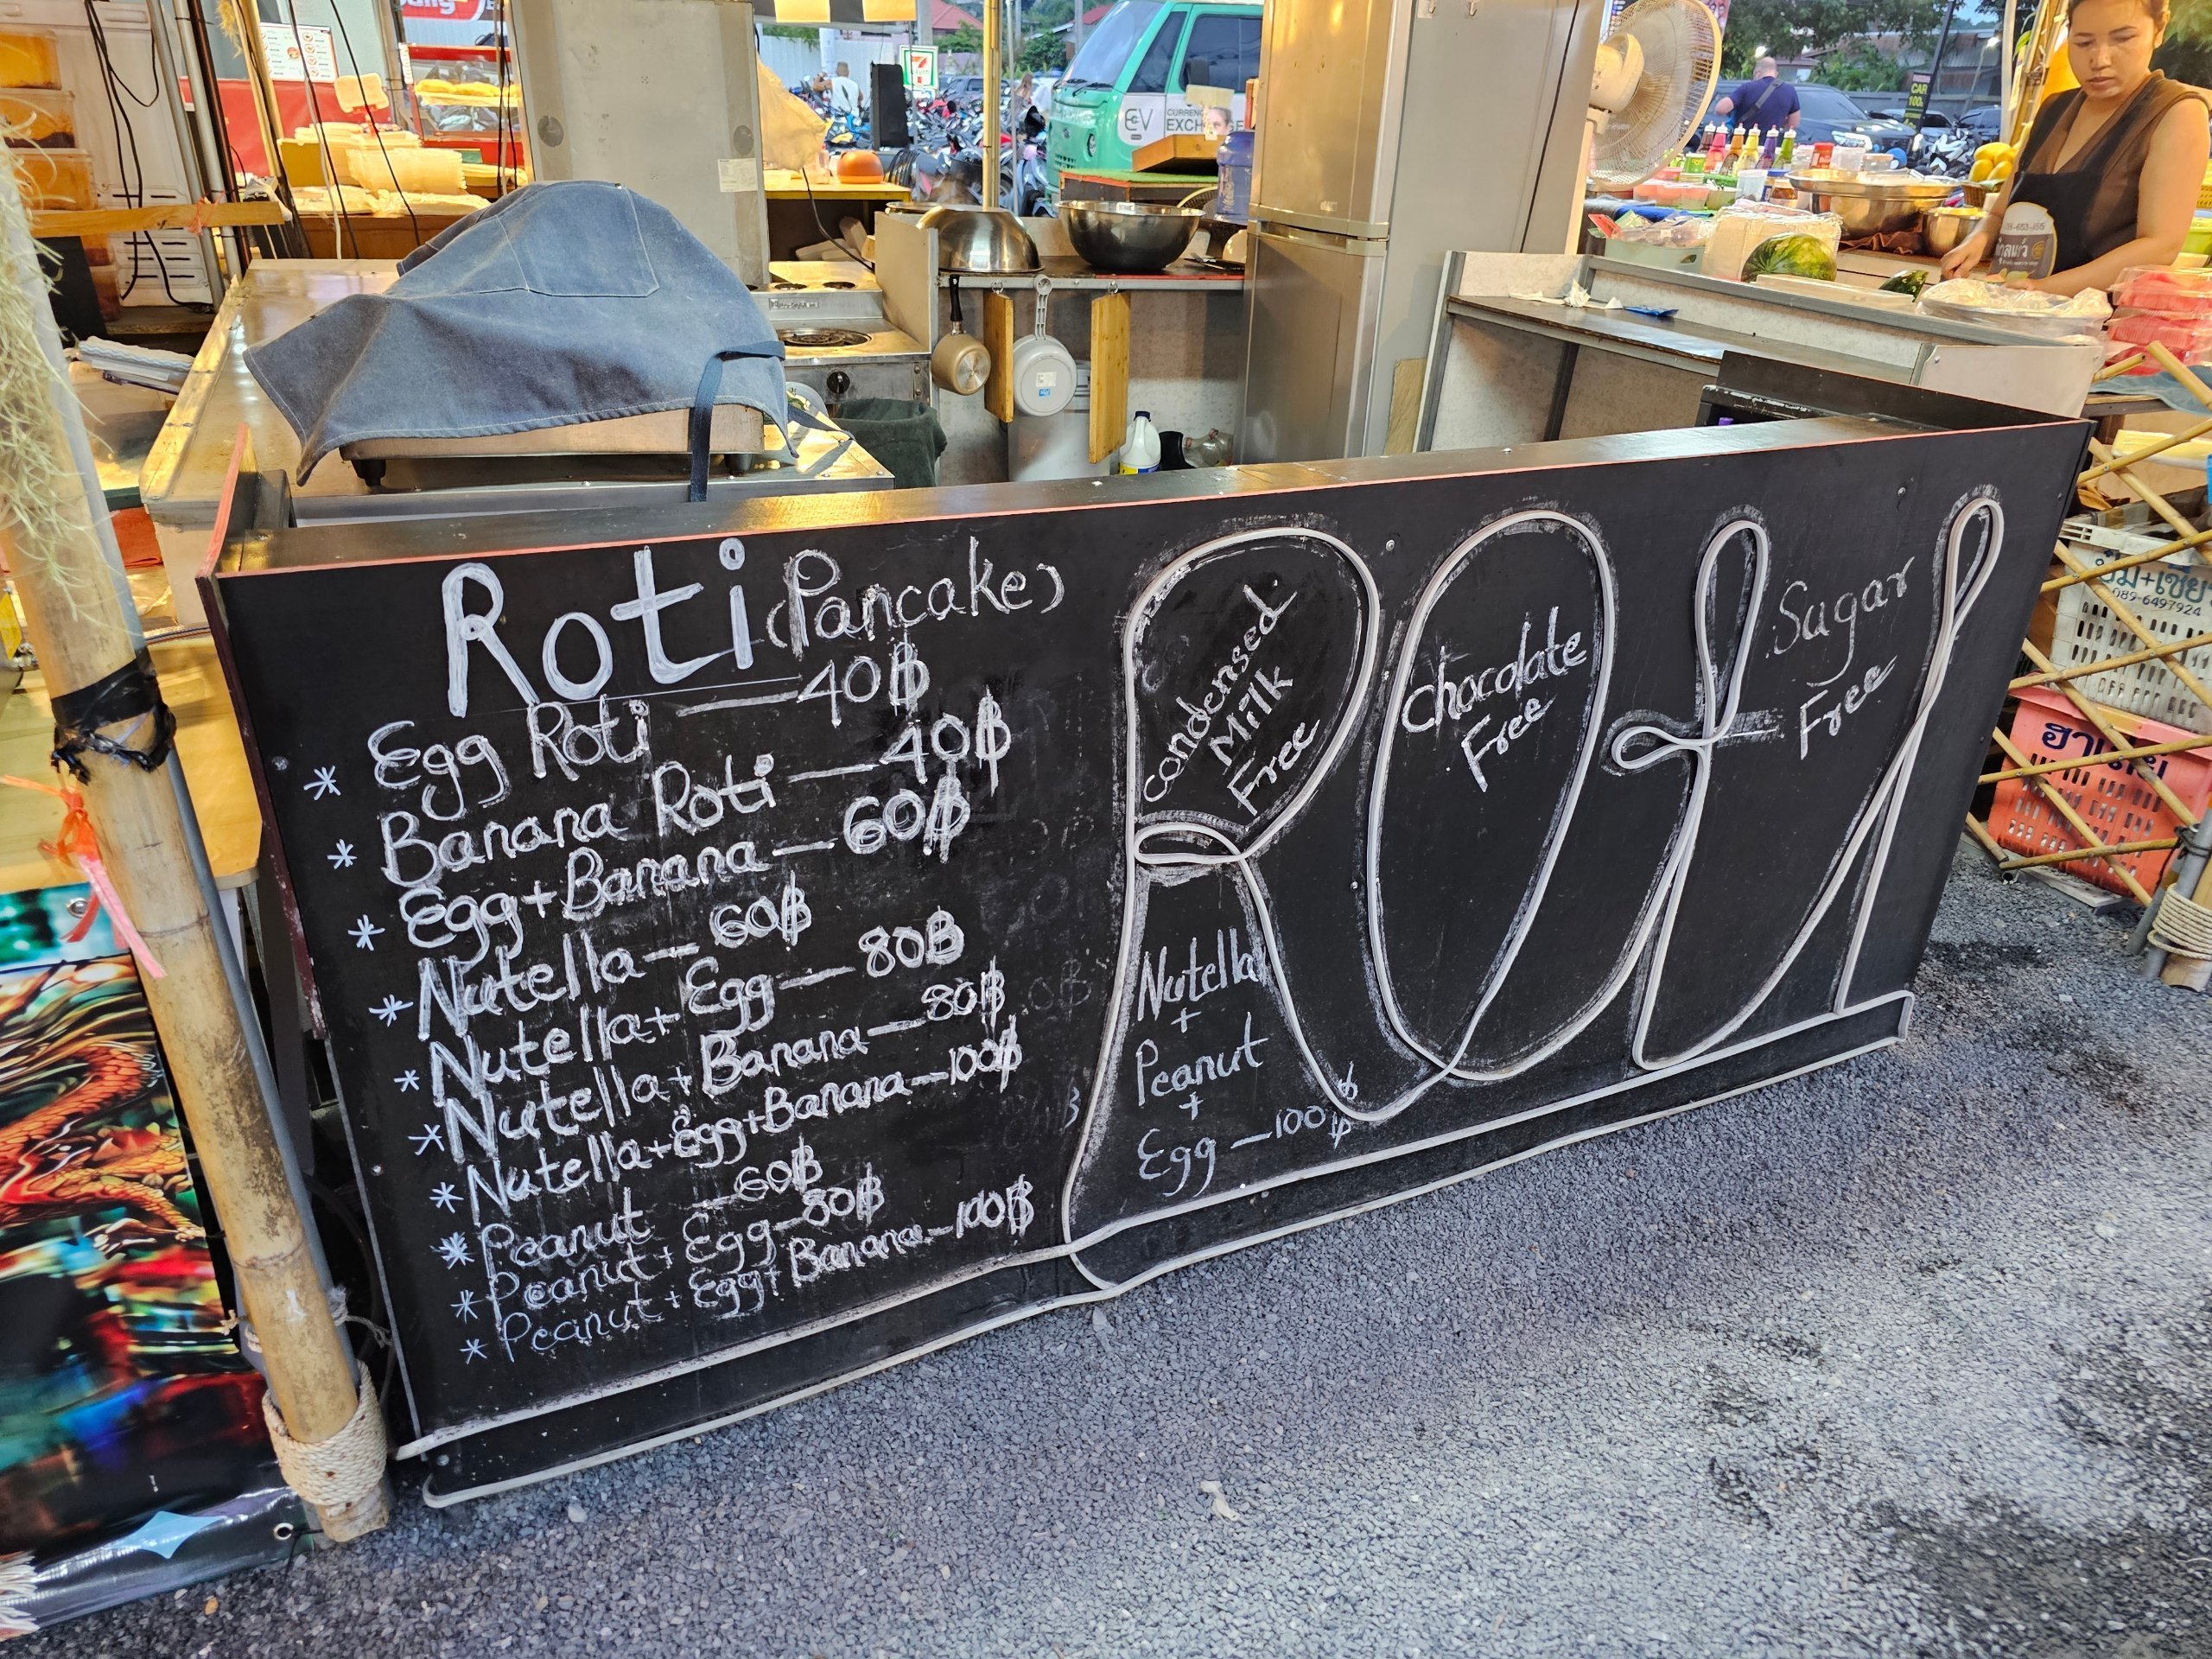 Roti (Pancake)
* Egg Roti — 40฿
* Banana Roti — 40฿
* Egg+Banana — 60฿
* Nutella — 60฿
* Nutella+Egg — 80฿
* Nutella+Banana — 80฿
* Nutella+Egg+Banana — 100฿
* Peanut — 60฿
* Peanut+Egg — 80฿
* Peanut+Egg+Banana — 100฿
ROti
Condensed
Milk
Free
Chocolate
Free
Sugar
Free
Nutella
+
Peanut
+
Egg — 100฿
EV
CURRENCY
EXCHANGE
CAR
089-6497924